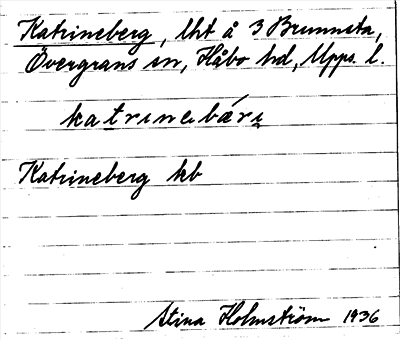 Katrineberg, lht å 3 Brunnsta,
Övergrans sn, Håbo hd, Upps. l.
katrinebäri
Katrineberg kb
Stina Holmström 1936